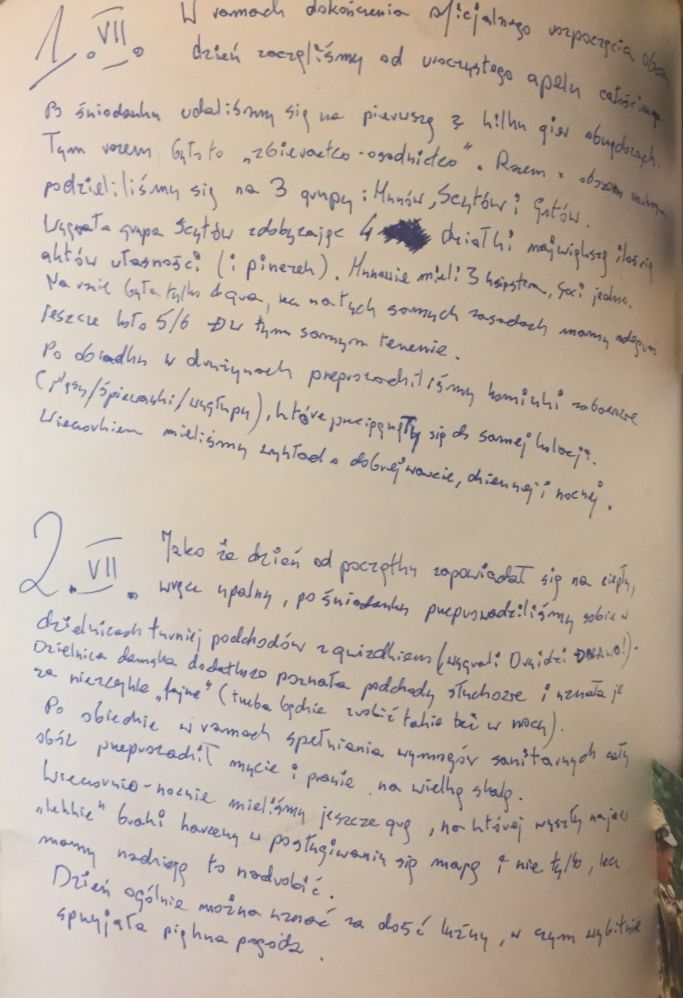 1.VII. W ramach dokończenia oficjalnego rozpoczęcia obozu
dzień zaczęliśmy od uroczystego apelu
Po śniadanku udaliśmy się na pierwszą z kilku gier obrzędowych.
Tym razem było to „zbieractwo-osadnictwo”. Razem z obozem
podzieliliśmy się na 3 grupy: Hunów, Scytów i Gotów.
Wygrała grupa Scytów zdobywając 4 działki największą ilością
aktów własności (i pinezek). Hunowie mieli 3 księstwa, Goci jedno.
Na razie była tylko 1 gra, na tych samych zasadach mamy
jeszcze koło 5/6 w tym samym terenie.
Po obiadku w drużynach przeprowadziliśmy kominki zabawowe
(pląsy/śpiewanki/wygłupy), które przeciągnęły się do samej kolacji.
Wieczorkiem mieliśmy wykład o dobrej warcie, dziennej i nocnej.
2.VII. Jako że dzień od początku zapowiadał się na ciepły,
wręcz upalny, po śniadanku przeprowadziliśmy sobie w
dzielnicach turniej podchodów z quizdkiem (wygrali Druidzi BRAWO!).
Dzielnica damska dodatkowo poznała podchody słuchowe i uznała je
za niezwykle „fajne” (trzeba będzie zrobić takie też w nocy).
Po obiedzie w ramach spełniania wymogów sanitarnych cały
obóz przeprowadził mycie i pranie na wielką skalę.
Wieczorno-nocnie mieliśmy jeszcze grę, na której wyszły na jaw
„lekkie” braki harcerzy w posługiwaniu się mapą i nie tylko, lecz
mamy nadzieję to nadrobić.
Dzień ogólnie można uznać za dość luźny, w czym wybitnie
sprzyjała piękna pogoda.